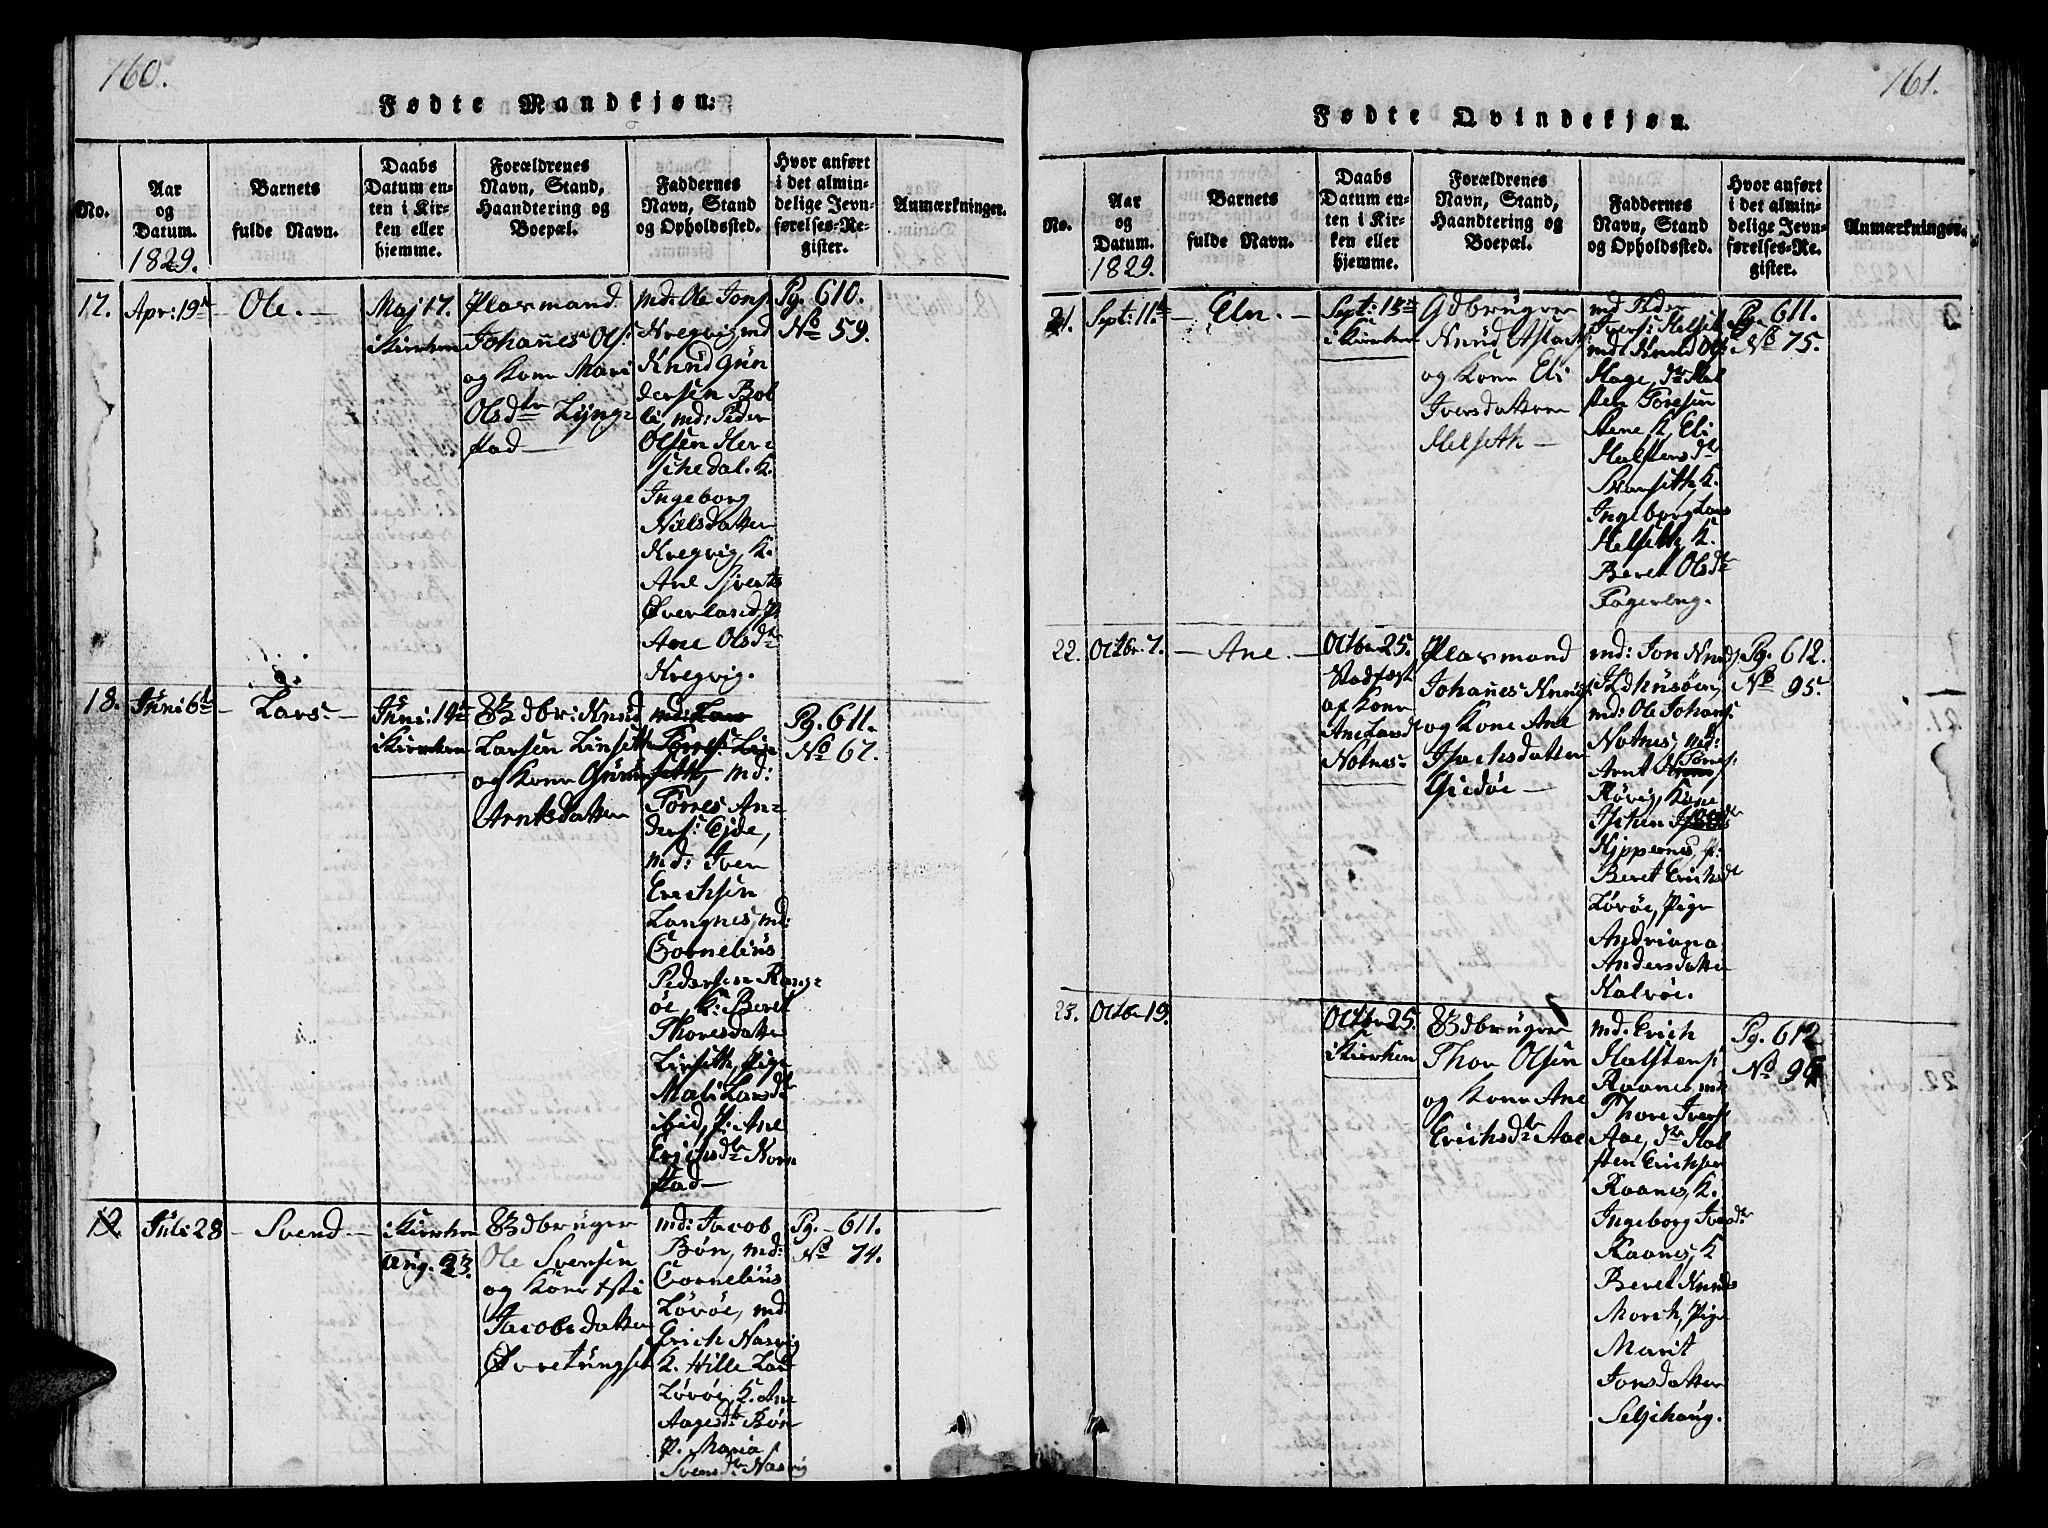 160.
Fødte Mandkjøn:
No.
Aar
og
Datum.
1829.
Barnets
fulde Navn.
Daabs
Datum en-
ten i Kir-
ken eller
hjemme.
Forældrenes
Navn, Stand,
Haandtering og
Boepæl.
Faddernes
Navn, Stand
og Opholdssted.
Hvor anført
i det almin-
delige Jevn-
førelses-Re-
gister.
Anmærkninger.
17.
Apr: 19
Ole.
Maj 17.
i Kirken
Plasmand
Johanes Ols:
og Kone Mari
Olsdtr Lynge
stad
md: Ole Jons:
Kregvig, md
Knud Gun
dersen Bol
li, md: Peder
Olsen Her
schedal. K.
Ingeborg
Nielsdatter
Kregvig, K.
Ane Siverts
Øverland, P.
Ane Olsdtr
Kregvig.
Pg. 610.
No 59.
18.
Juni 6
Lars
Juni: 14
i Kirken
Gdbr: Knud
Larsen Linseth
og Kone Guru
Arntsdatter
md: Lars
Torres: Lin
seth, md:
Torres An-
ders: Ejde,
md: Iver
Erichsen
Langnes, md:
Cornelius
Pedersen Rang-
øe, K: Beret
Thoresdatter
Linseth, Pige
Mali Larsdtr
ibid, P: Ane
Erichsdtr Nor
stad
Pg. 611.
No 67.
19.
Juli 28
Svend
i Kirken
Aug. 23.
Gdbruger
Ole Svensen
og Kone
Jacobsdatter
Øvretungset
md: Jacob
Bøn, md:
Cornelius
Lørøe, md:
Erich Nasvig
K. Hille Lars
Lørøe, K. Ane
Aagesdt: Bøn
P. Maria
Svensdtr Nasvig
Pg. 611.
No 74.
161.
Fødte Qvindekjøn.
No.
Aar
og
Datum.
1829.
Barnets
fulde Navn.
Daabs
Datum en-
ten i Kir-
ken eller
hjemme.
Forældrenes
Navn, Stand,
Haandtering og
Boepæl.
Faddernes
Navn, Stand
og Opholdssted.
Hvor anført
i det almin-
delige Jevn-
førelses-Re-
gister.
Anmærkninger.
21.
Sept: 11
Elen.
Sept: 13
i Kirken
Gdbruger
Knud Aslachs:
og Kone Eli
Iversdatter
Helseth
md Peder
Ivers: Helset
md: Knud Ols:
Hage, dr Hal
sten Toresen
Stene K. Eli
Halstensdt
Svarseth, K.
Ingeborg Lars
Helseth, K.
Beret Olsdtr
Fagereng.
Pg. 611.
No 75.
22.
Octbr. 7.
Ane.
Octbr 25.
Stadfæst
af Kone
Ane Larsdtr
Notnes
Plasmand
Johanes Knuds:
og Kone Ane
Isachsdatter
Giedøe
md: Jon Knuds:
Ildhusøen,
md: Ole Johans:
Notnes, md:
Arnt Torres:
Røvig, Kone
Kippernes, K:
Beret Erichsdt
Lørøe, Pige
Andriana
Andersdatter
Kalvøe.
Pg. 612.
No 95.
23.
Octbr 19.
Octbr 25.
i Kirken
Gdbruger
Thor Olsen
og Kone Ane
Erichsdtr Aae
md. Erich
Halstens:
Raanes, md:
Thore Ivers:
Aae, dr Hal
sten Erichsen
Raanes, K.
Ingeborg Iversdtr
Raanes, K
Beret Knuds
Morch, Pige
Marit
Jonsdatter
Seljehaug.
Pg. 612
No 96